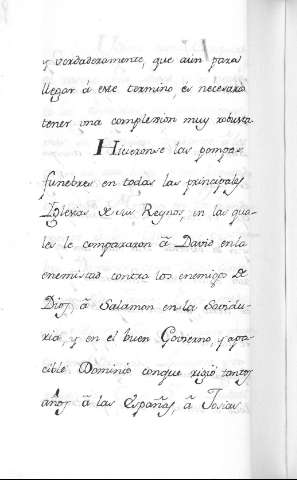 y verdaderamente, que aún para
llegar á este termino, és necesario
tener una complexion muy robusta.
Hicieronse las pompas
funebres en todas las principales
Iglesias de sus Reynos, en las qua-
les le compararon â David en la
enemistad contra los enemigos de
Dios, â Salamon en la Savidu-
ria, y en el buen Govierno, y apa-
cible Dominio conque rigió tantos
años â las Españas, â Josias